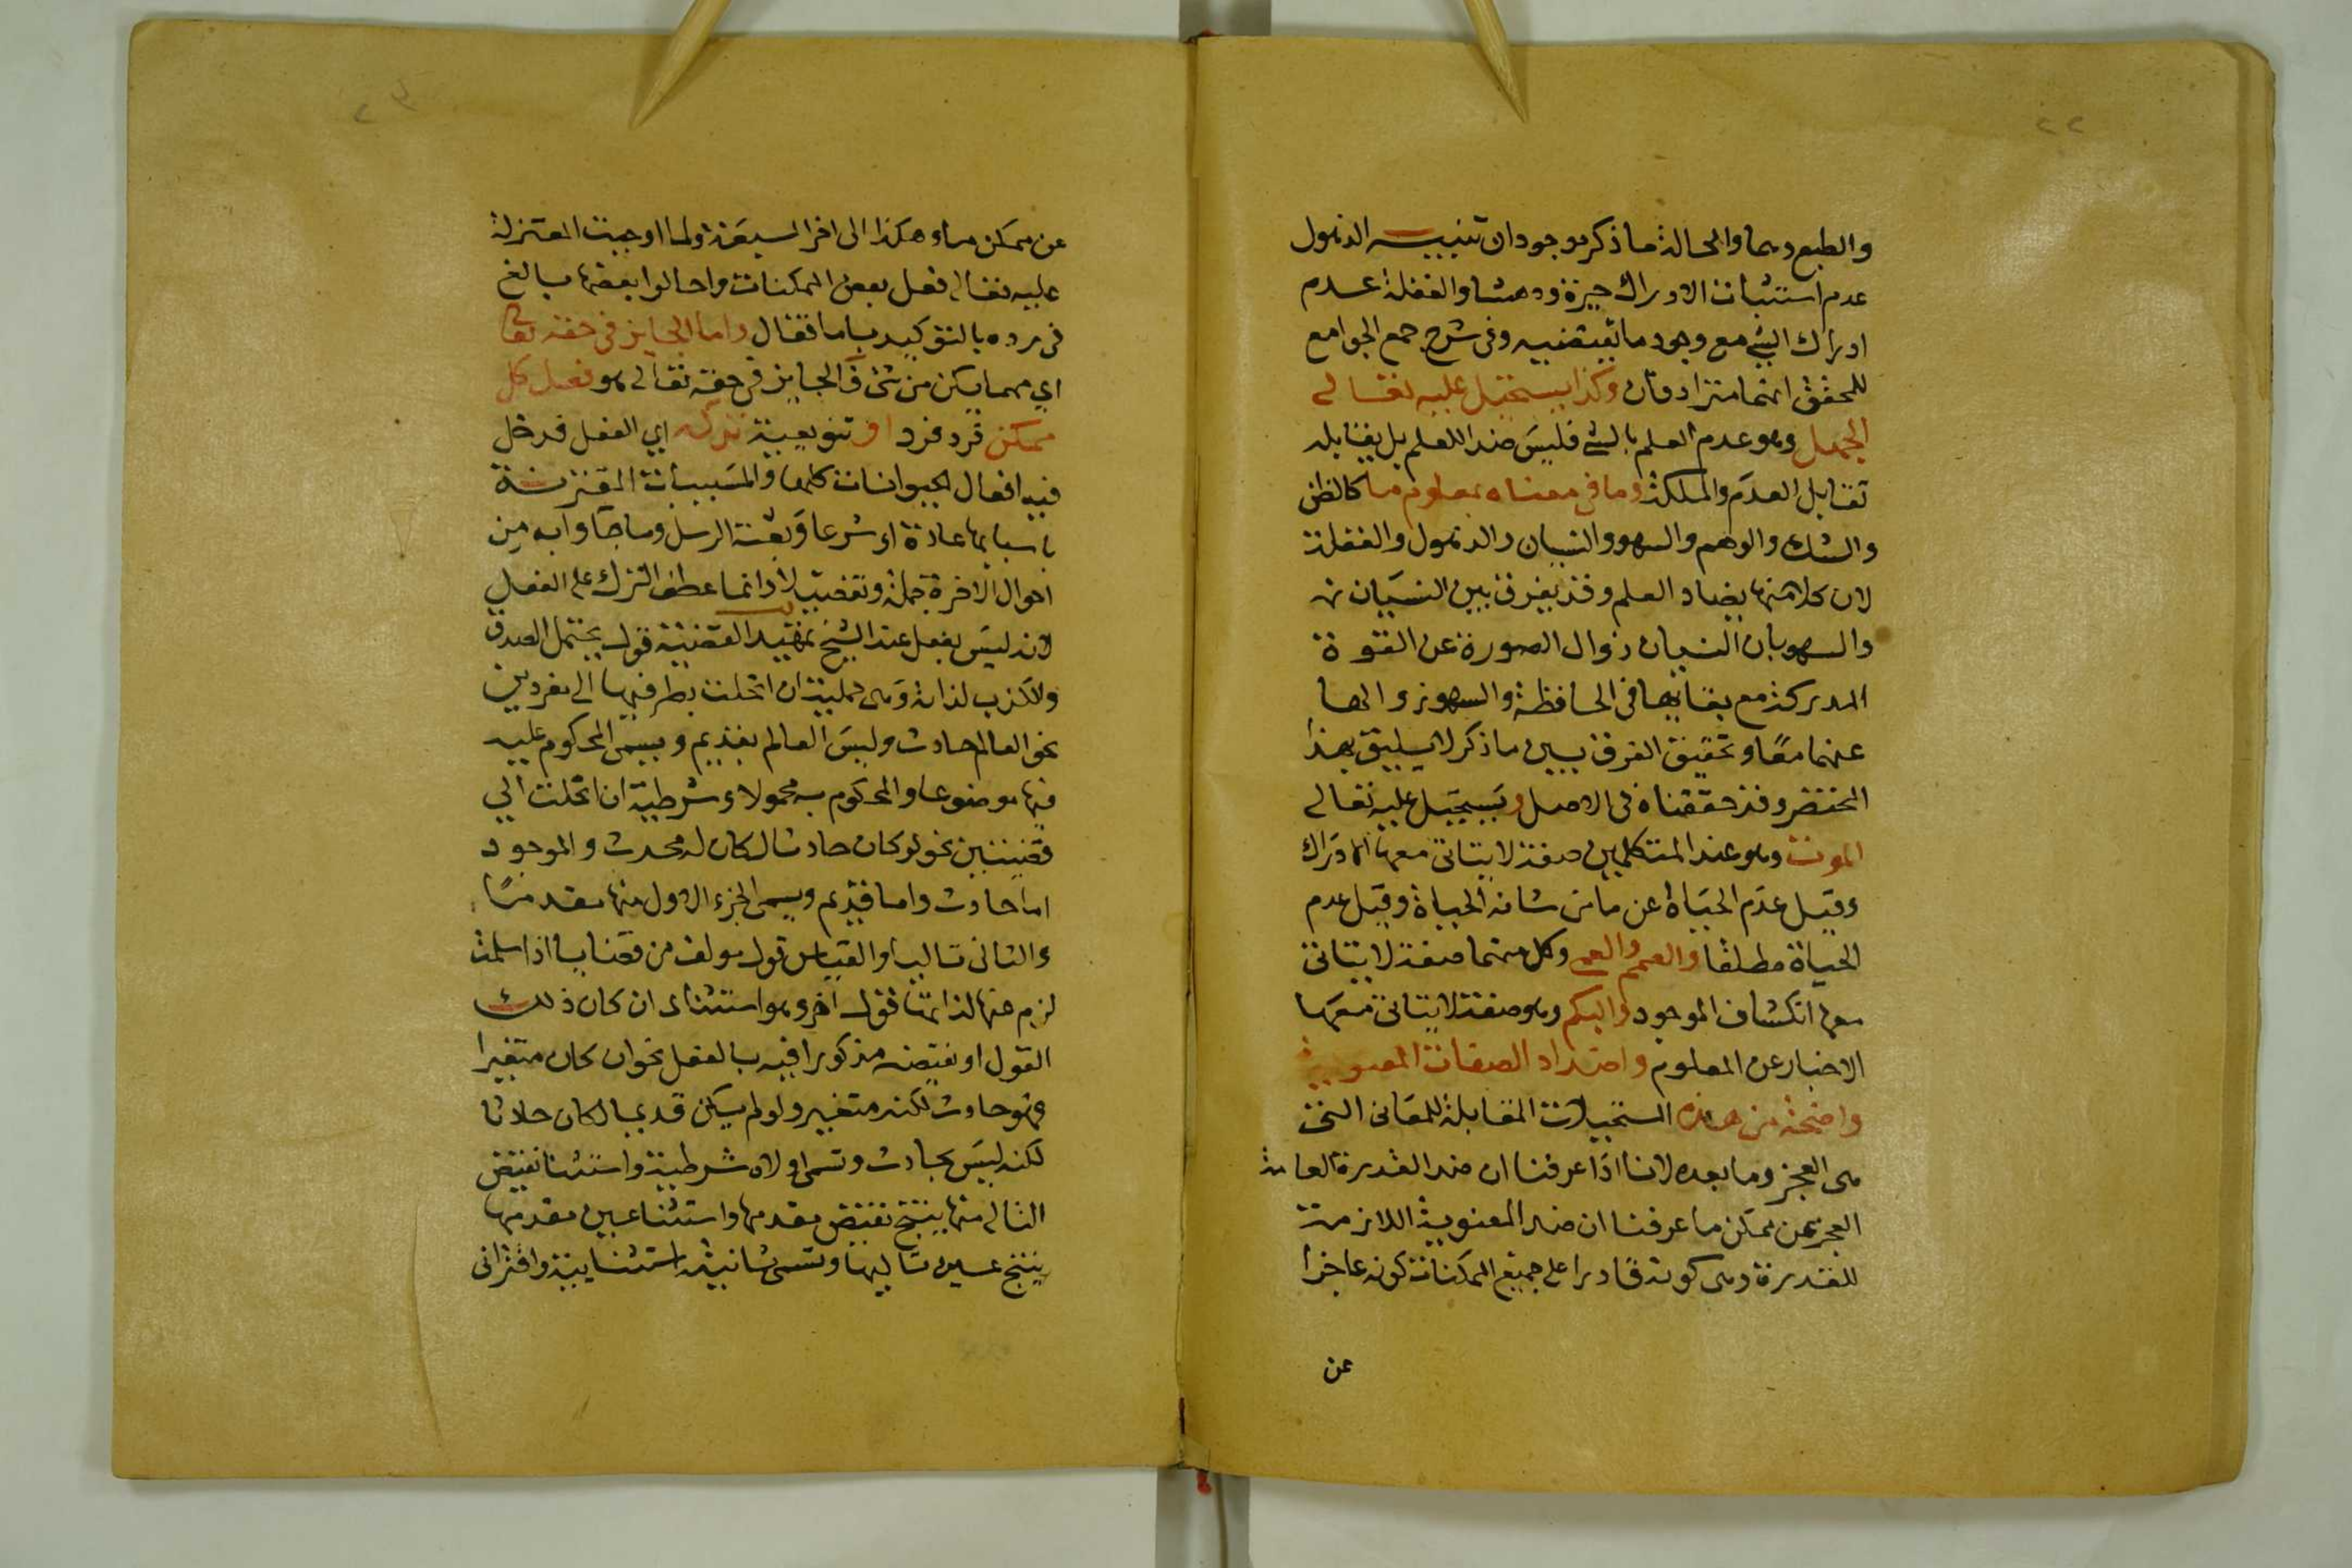 ٢٢
والطبع وبهما والحالة ما ذكر موجودان تنبيه الذهول
عدم استثبات الادراك حيرة ودهشا والغفلة عدم
ادراك الشي مع وجود ما يقتضيه وفى شرح جمع الجوامع
للمحقق انهما مترادفان وكذا يستحيل عليه تعالى
الجهل وهو عدم العلم بالشي فليس ضدا للعلم بل يقابله
تقابل العدم والملكة وما فى معناه بمعلوم ما كالظن
والشك والوهم والسهو والنسيان والذهول والغفلة
لان كلا منها يضاد العلم وقد يفرق بين النسيان
والسهو بان النسيان زوال الصورة عن القوة
المدركة مع بقائها فى الحافظة والسهو زوالها
عنهما معا وتحقيق الفرق بين ما ذكر لا يليق بهذا
المختصر وقد حققناه فى الاصل ويستحيل عليه تعالى
الموت وهو عند المتكلمين صفة لا يتاتى معها ادراك
وقيل عدم الحياة عن ما من شانه الحياة وقيل عدم
الحياة مطلقا والصمم والعمى وكل منهما صفة لا يتاتى
معها انكشاف الموجود والبكم وهو صفة لا يتاتى معها
الاخبار عن المعلوم واضداد الصفات المعنوية
واضحة من هذه المستحيلات المقابلة للمعانى التى
هى العجز وما بعده لاننا اذا عرفنا ان ضد القدرة العامة
العجز عن ممكن ما عرفنا ان ضد المعنوية اللازمة
للقدرة وهى كونه قادرا على جميع الممكنات كونه عاجزا
عن
عن ممكن ما وهكذا الى اخر السبعة ولما اوجبت المعتزلة
عليه تعالى فعل بعض الممكنات واحالوا بعضها بالغ
فى رده بالتوكيد باما فقال واما الجايز فى حقه تعالى
اي مهما يكن من شئ فالجايز فى حقه تعالى هو فعل كل
ممكن فرد فرد او تنويعية تركه اي الفعل فدخل
فيه افعال الحيوانات كلها والمسببات المقترنة
باسبابها عادة او شرعا وبعثة الرسل وما جاوا به من
احوال الاخرة جملة وتفصيلا وانما عطف الترك على الفعل
لانه ليس بفعل عند الشيخ تمهيد القضية قول يحتمل الصدق
والكذب لذاته وهى حملية ان انحلت بطرفيها الى مفردين
نحو العالم حادث وليس العالم بقديم ويسمى المحكوم عليه
فيها موضوعا والمحكوم به محمولا وشرطية ان انحلت الي
قضيتين نحو لو كان حادثا لكان له محدث والموجود
اما حادث واما قديم ويسمى الجزء الاول منها مقدما
والثانى تاليا والقياس قول مولف من قضايا اذا سلمت
لزم عنها لذاتها قول اخر وهو استثناى ان كان ذلك
القول او نقيضه مذكورا فيه بالفعل نحو ان كان متغيرا
فهو حادث لكنه متغير ولو لم يكن قديما لكان حادثا
لكنه ليس بحادث وتسمى اولاه شرطية واستثنا نقيض
التالى منها ينتج نقيض مقدمها واستثنا عين مقدمها
ينتج عين تاليها وتسمى ثانيته استثنايية واقترانى